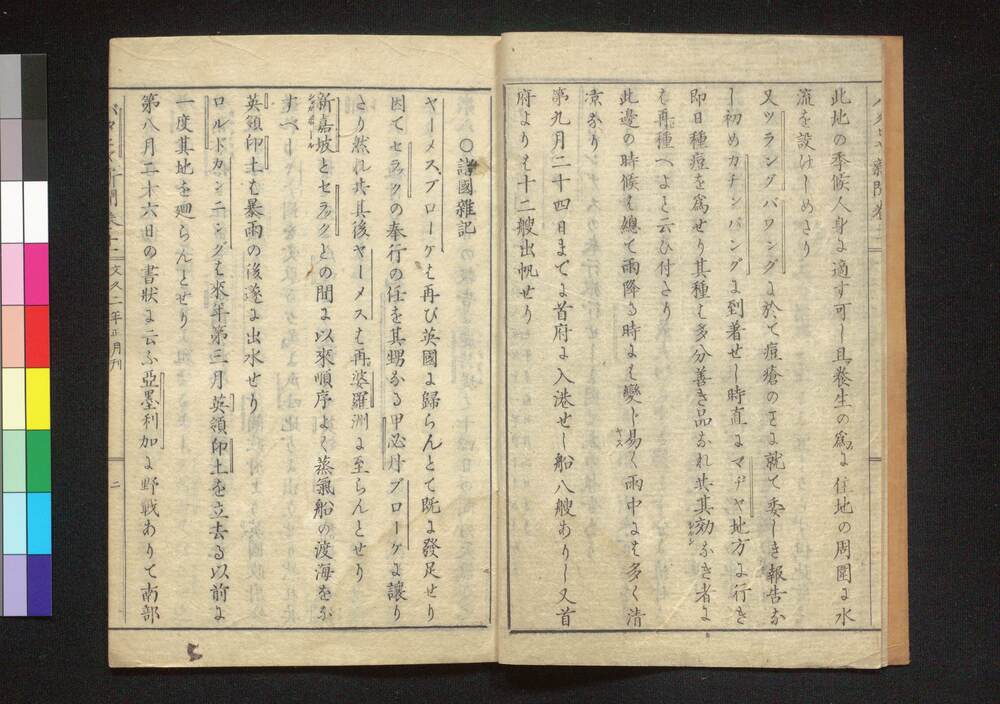 此地の季候人身に適す可し且養生の爲に住地の周圍に水
流を設けしめたり
又ツランクバワングに於て痘瘡のことに就て委しき報告な
し初めカチンバングに到着せし時直にマヂヤ地方に行き
即日種痘を爲せり其種も多分善き品なれ共其効なき者に
も再種へよと云ひ付たり
此邊の時候は總て雨降る時には變じ易く雨中には多く清
凉なり
第九月二十四日までに首府に入港せし船八艘ありし又首
府よりは十二艘出帆せり
○諸國雜記
ヤーメスブローケは再び英國に歸らんとて既に發足せり
因てセラックの奉行の任を其甥なる甲必丹ブローケに讓り
たり然れ共其後ヤーメスは再婆羅洲に至らんとせり
新嘉坡とセラックとの間に以來順序よく蒸氣船の渡海をな
すべし
英領印土は暴雨の後遂に出水せり
ロルドカンニングは來年第三月英領印土を立去る以前に
一度其地を廻らんとせり
第八月二十六日の書狀に云ふ亞墨利加に野戰ありて南部
文久二年正月刊
二